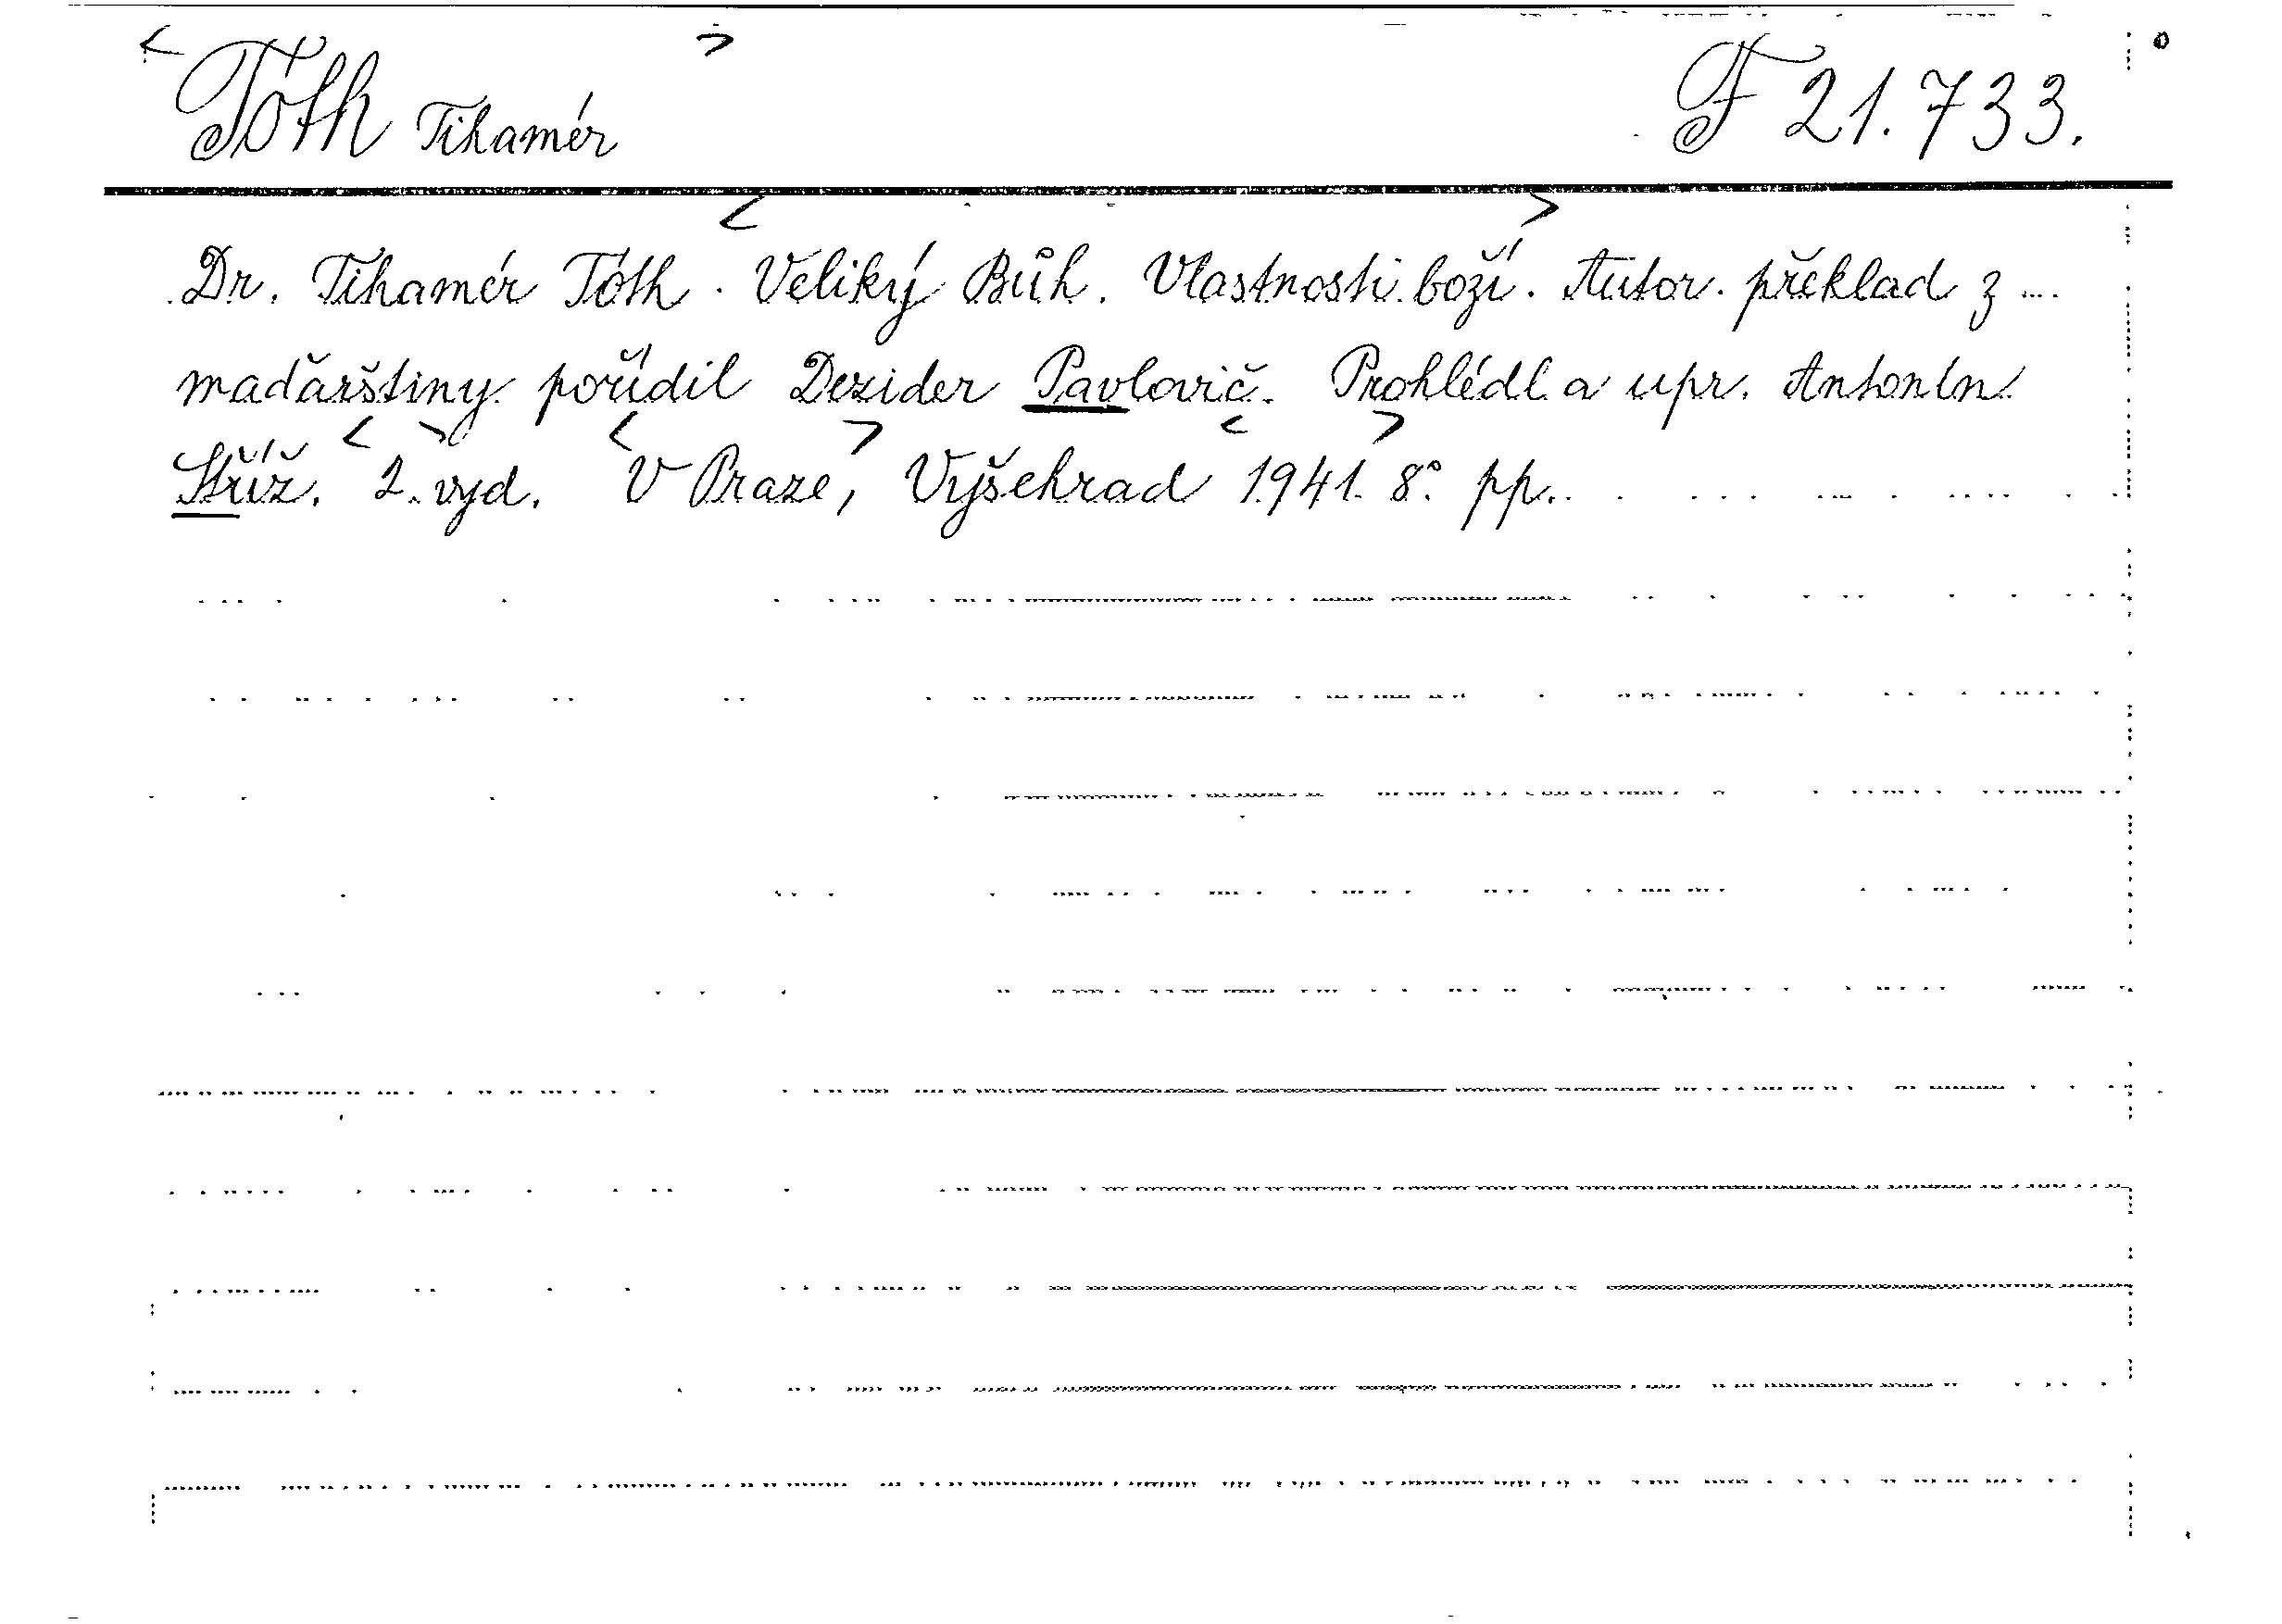 <Tóth Tihamér> F 21.733.
Dr. Tihamér Tóth. <Veliký Bůh. Vlastnosti boží>. Autor. překlad z
maďarštiny pořídil Dezider Pavlovič. Prohlédl a upr. Antonín
Stříž. <2. vyd.> <V Praze>, Vyšehrad <1941>. 8° pp.